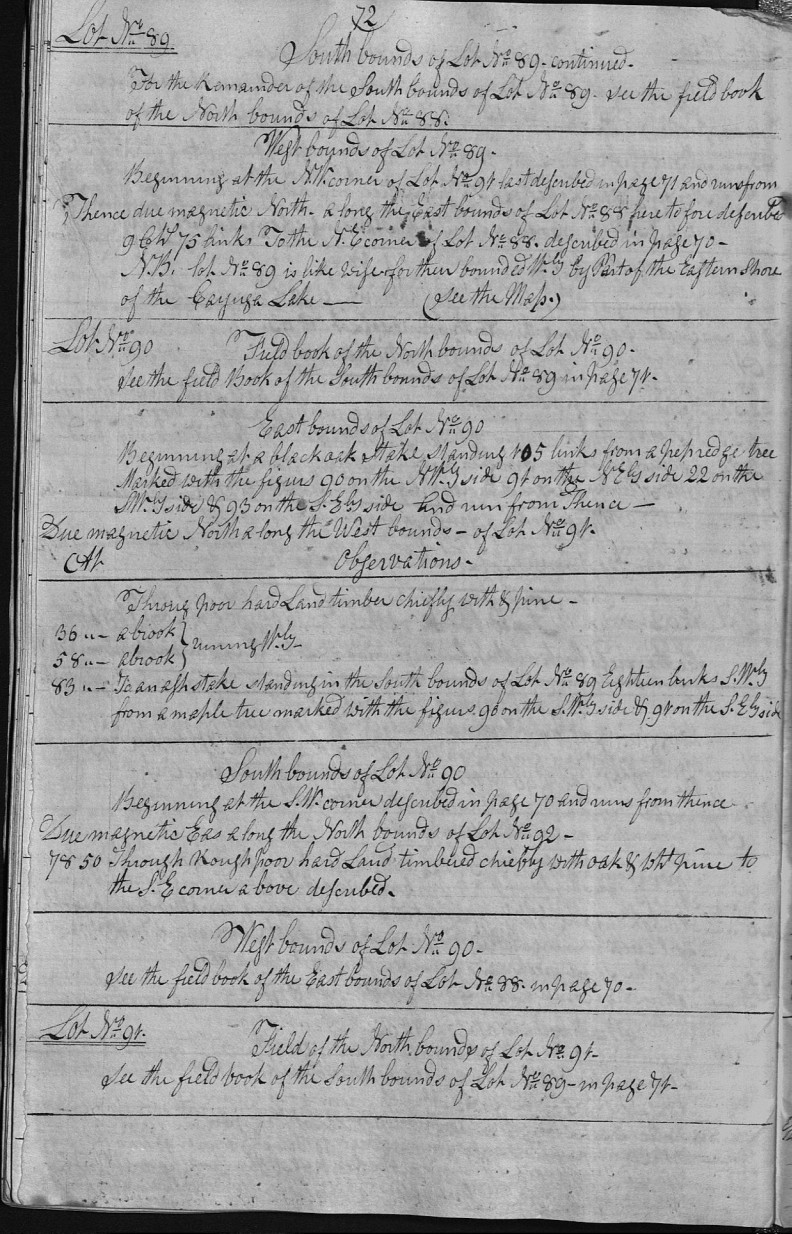 72
Lot No. 89.
South bounds of Lot No. 89. continued.
For the Remainder of the South bounds of Lot No. 89. see the field book
of the North bounds of Lot No. 88.
West bounds of Lot No. 89.
Beginning at the N.W. corner of Lot No. 91 last described in page 71 and runs from
Thence due magnetic North. along the East bounds of Lot No. 88 here to fore described
9 Chs. 75 links To the N.E corner of Lot No. 88. described in page 70 -
N.B. lot No. 89 is like wise further bounded W.ly by Part of the Eastern Shore
of the Cayuga Lake — (see the Map.)
Lot No. 90 Field book of the North bounds of Lot No. 90.
see the field Book of the South bounds of Lot No. 89 in page 71.
East bounds of Lot No. 90
Beginning at a black oak stake standing 105 links from a tree
Marked with the figurs 90 on the N.W.ly side 91 on the N.E.ly side 22 on the
S.W.ly side & 93 on the S.E.ly side and run from Thence —
Due magnetic North along the West bounds - of Lot No. 91.
At Observations.
Throug poor hard Land timber chiefly with & pine -
36 .. - a brook }
} runing W.ly -
58 .. - a brook }
83 .. - To an ash stake standing in the South bounds of Lot No. 89 Eighteen links S.W.ly
from a maple tree marked with the figurs 90 on the S.W.ly side & 91 on the S.E.ly side
South bounds of Lot No. 90
Beginning at the S.W. corner described in page 70 and runs from thence
Due magnetic Eas along the North bounds of Lot No. 92 -
78 50 Through Rough poor hard Land timbered chiefly with oak & Wht pine to
the S.E corner above described.
West bounds of Lot No. 90.
see the field book of the East bounds of Lot No. 88. in page 70 -
Lot No. 91.
Field of the North bounds of Lot No. 91 -
see the field book of the South bounds of Lot No. 89 - in page 71 -